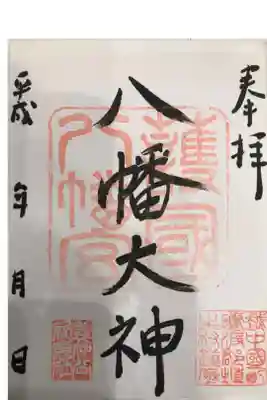 奉拝
八幡大神
平成 年 月 日
護國
八幡宮